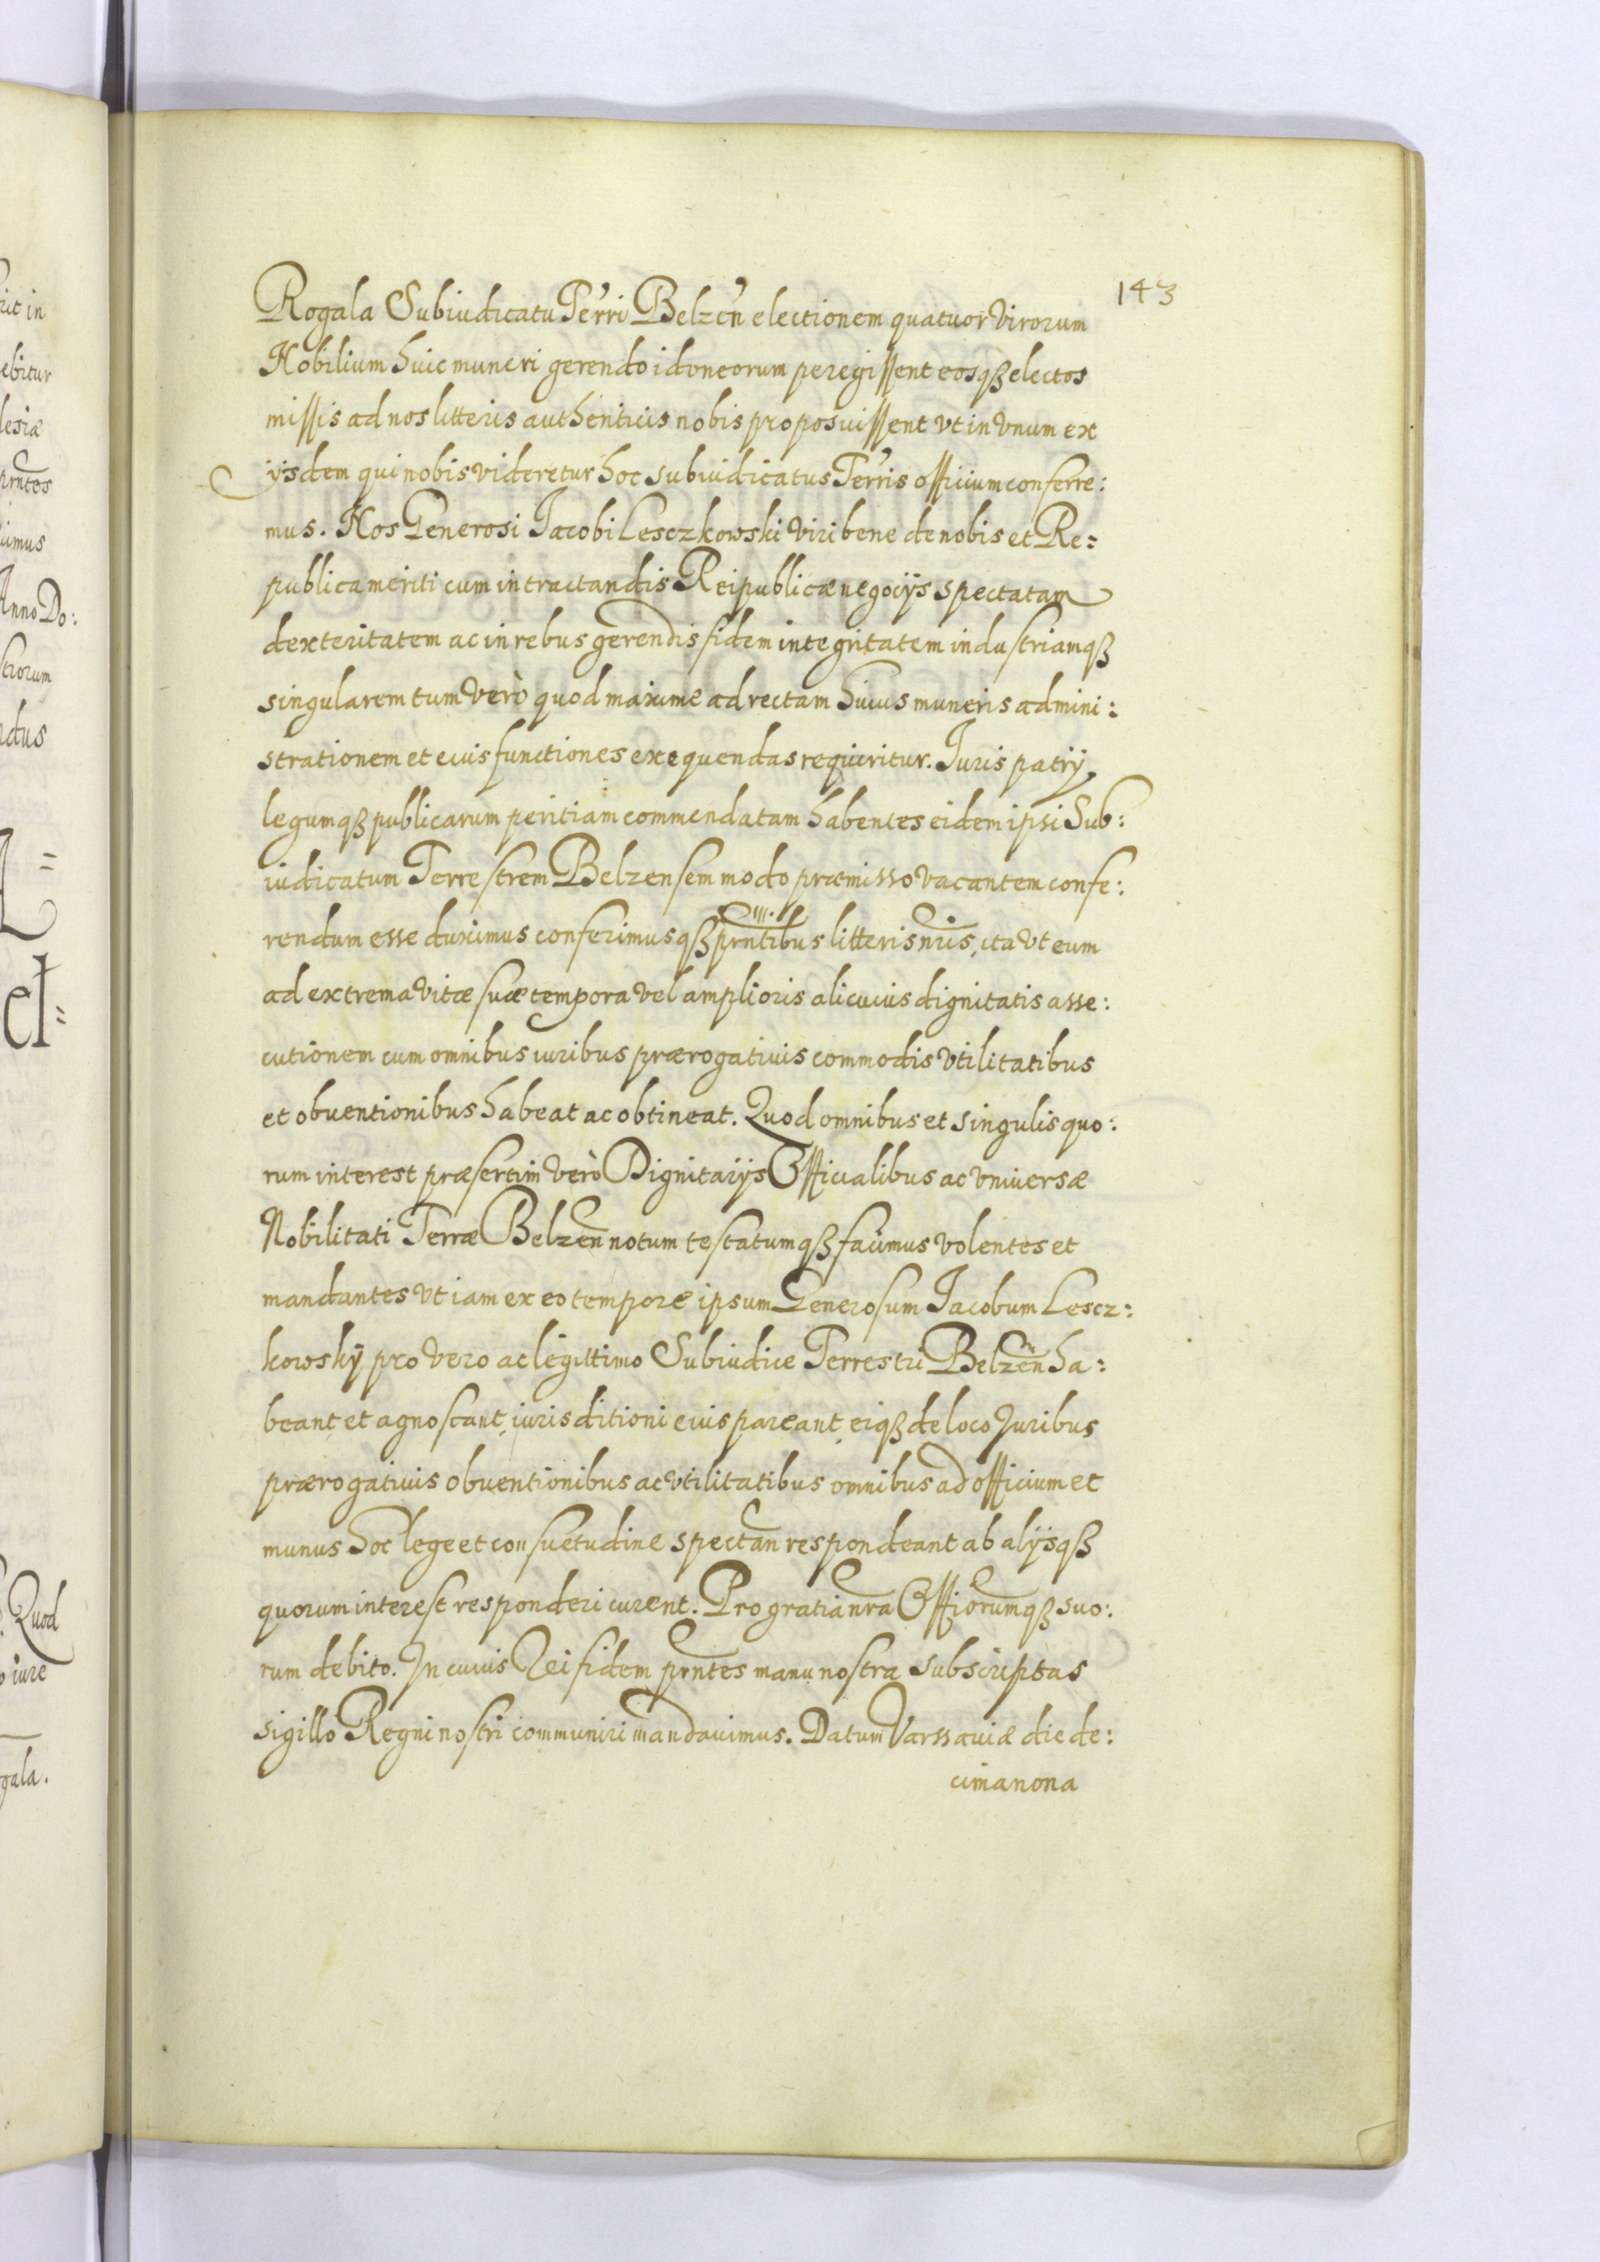 143
Rogala Subiudicatu Terri Belzen electionem quatuor Virorum
Nobilium huic muneri gerendo idoneorum peregissent eosqß electos
missis ad nos litteris authenticis nobis proposuissent vt in vnum ex
ijsdem qui nobis videretur hoc subiudicatus Terris officium conferre:
mus. Nos Generosi Jacobi Lesczkowski Viri bene de nobis et Re=
publica meriti cum in tractandis Reipublicæ negocijs spectatam
dexteritatem ac in rebus gerendis fidem integritatem industriamqß
singularem tum verò quod maxime ad rectam huius muneris admini:
strationem et eius functiones exequendas requiritur. Juris patrij
legumqß publicarum peritiam commendatam habentes eidem ipsi Sub:
iudicatum Terrestrem Belzensem modo præmisso vacantem confe:
rendum esse duximus conferimusqß prntibus litteris nris, ita vt eum
ad extrema vitæ suæ tempora vel amplioris alicuius dignitatis asse:
cutionem cum omnibus iuribus prærogatiuis commodis vtilitatibus
et obuentionibus habeat ac obtineat. Quod omnibus et singulis quo:
rum interest præsertim verò Dignitarijs Officialibus ac vniuersæ
Nobilitati Terræ Belzen notum testatumqß facimus volentes et
mandantes vt iam ex eo tempore ipsum Generosum Jacobum Lescz:
kowskÿ pro vero ac legittimo Subiudice Terrestri Belzen ha:
beant et agnoscant, iurisditioni eius pareant, eiqß de loco Juribus
prærogatiuis obuentionibus ac vtilitatibus omnibus ad officium et
munus hoc lege et consuetudine spectan respondeant ab alijsqß
quorum interest responderi curent. Pro gratia nra Officiorumqß suo:
rum debito. In cuius Rei fidem prntes manu nostra subscriptas
sigillo Regni nostri communiri mandauimus. Datum Varssauiæ die de:
cimanona